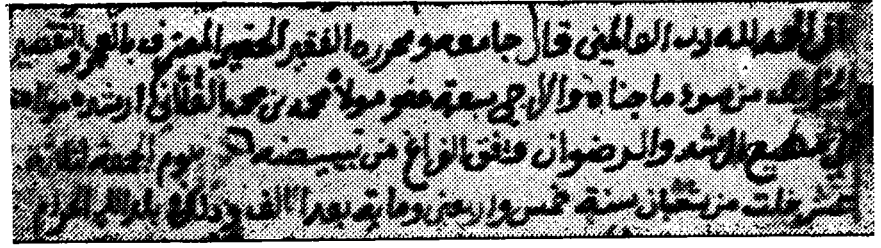 ان الحمد لله رب العالمين قال جامعه ومحرره الفقير الحقير المعترف بالعجز والتقصير
الخائف من سوء ما جناه والراجي سعة عفو مولاه محمد بن محمد الفلاني ارشده مولاه
الرشد والرضوان وتفق الفراغ من تبييضه يوم الجمعة لثلاثة
عشر خلت من شعبان سنة خمس واربعين وماية بعد الالف وذلك بلد الله الحرام